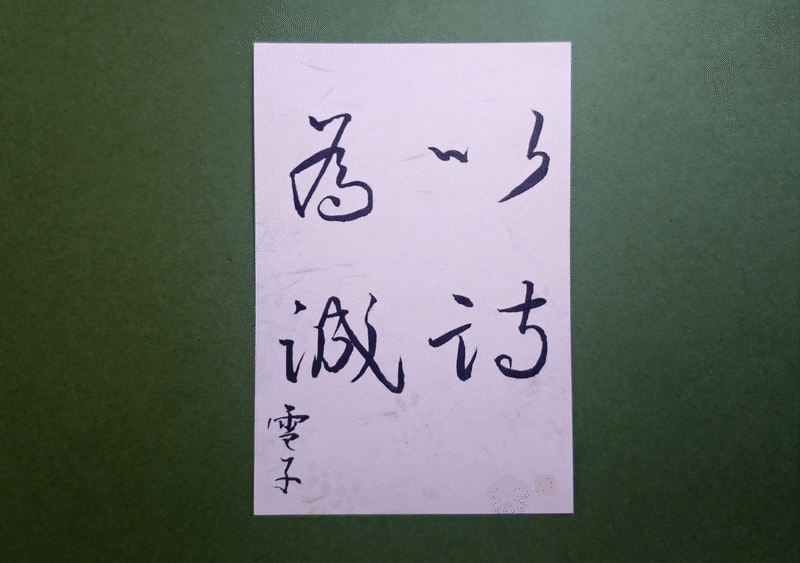 以詩
為誠
雪子